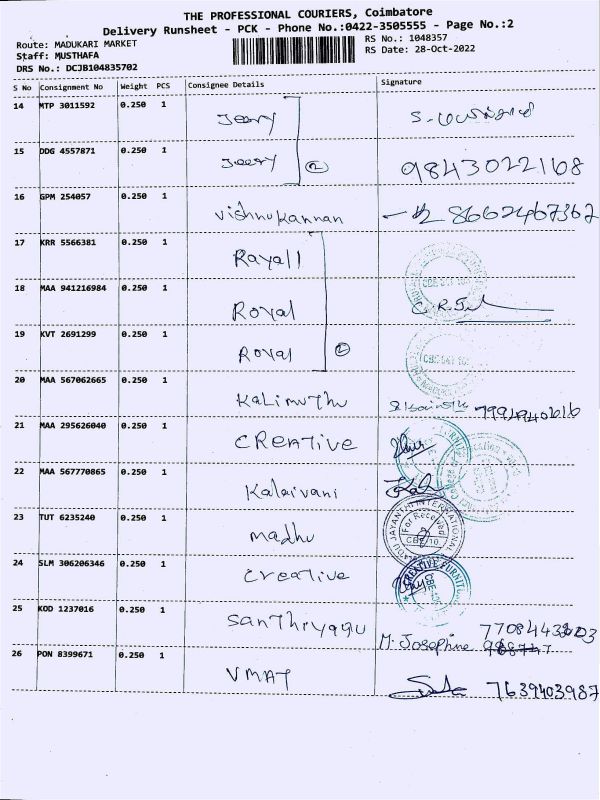 THE PROFESSIONAL COURIERS, Coimbatore
Delivery Runsheet - PCK - Phone No.:0422-3505555 - Page No.:2
Route: MADUKARI MARKET
Staff: MUSTHAFA
DRS No.: DCJB104835702
RS No.: 1048357
RS Date: 28-Oct-2022
S No Consignment No Weight PCS Consignee Details Signature
14 MTP 3011592 0.250 1 Jeery
15 DDG 4557871 0.250 1 Jeery 2 9843022168
16 GPM 254057 0.250 1 Vishnukannan 8662467367
17 KRR 5566381 0.250 1 Rayall
18 MAA 941216984 0.250 1 Royal
19 KVT 2691299 0.250 1 Royal 2
20 MAA 567062665 0.250 1 Kalimuthu
21 MAA 295626040 0.250 1 CREATIVE
22 MAA 567770865 0.250 1 Kalaivani
23 TUT 6235240 0.250 1 madhu INTERNATIONAL For Received CBE/10
24 SLM 306206346 0.250 1 Creative CREATIVE FURNIT
25 KOD 1237016 0.250 1 Santhiyagu M. Josephine
26 PON 8399671 0.250 1 VMAT 7639403987